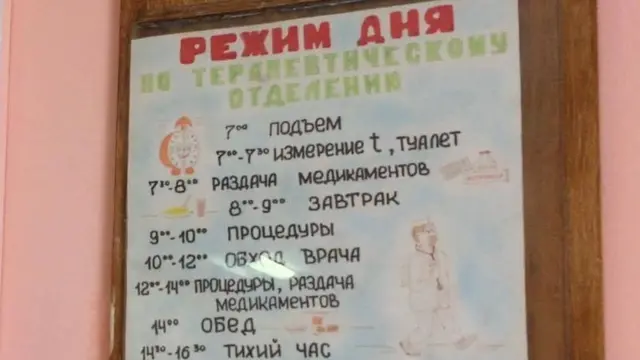 РЕЖИМ ДНЯ
ПО ТЕРАПЕВТИЧЕСКОМУ
ОТДЕЛЕНИЮ
7⁰⁰ ПОДЪЕМ
7⁰⁰-7³⁰ ИЗМЕРЕНИЕ t, ТУАЛЕТ
7³⁰-8⁰⁰ РАЗДАЧА МЕДИКАМЕНТОВ
8⁰⁰-9⁰⁰ ЗАВТРАК
9⁰⁰-10⁰⁰ ПРОЦЕДУРЫ
10⁰⁰-12⁰⁰ ОБХОД ВРАЧА
12⁰⁰-14⁰⁰ ПРОЦЕДУРЫ, РАЗДАЧА
МЕДИКАМЕНТОВ
14⁰⁰ ОБЕД
14³⁰-16³⁰ ТИХИЙ ЧАС